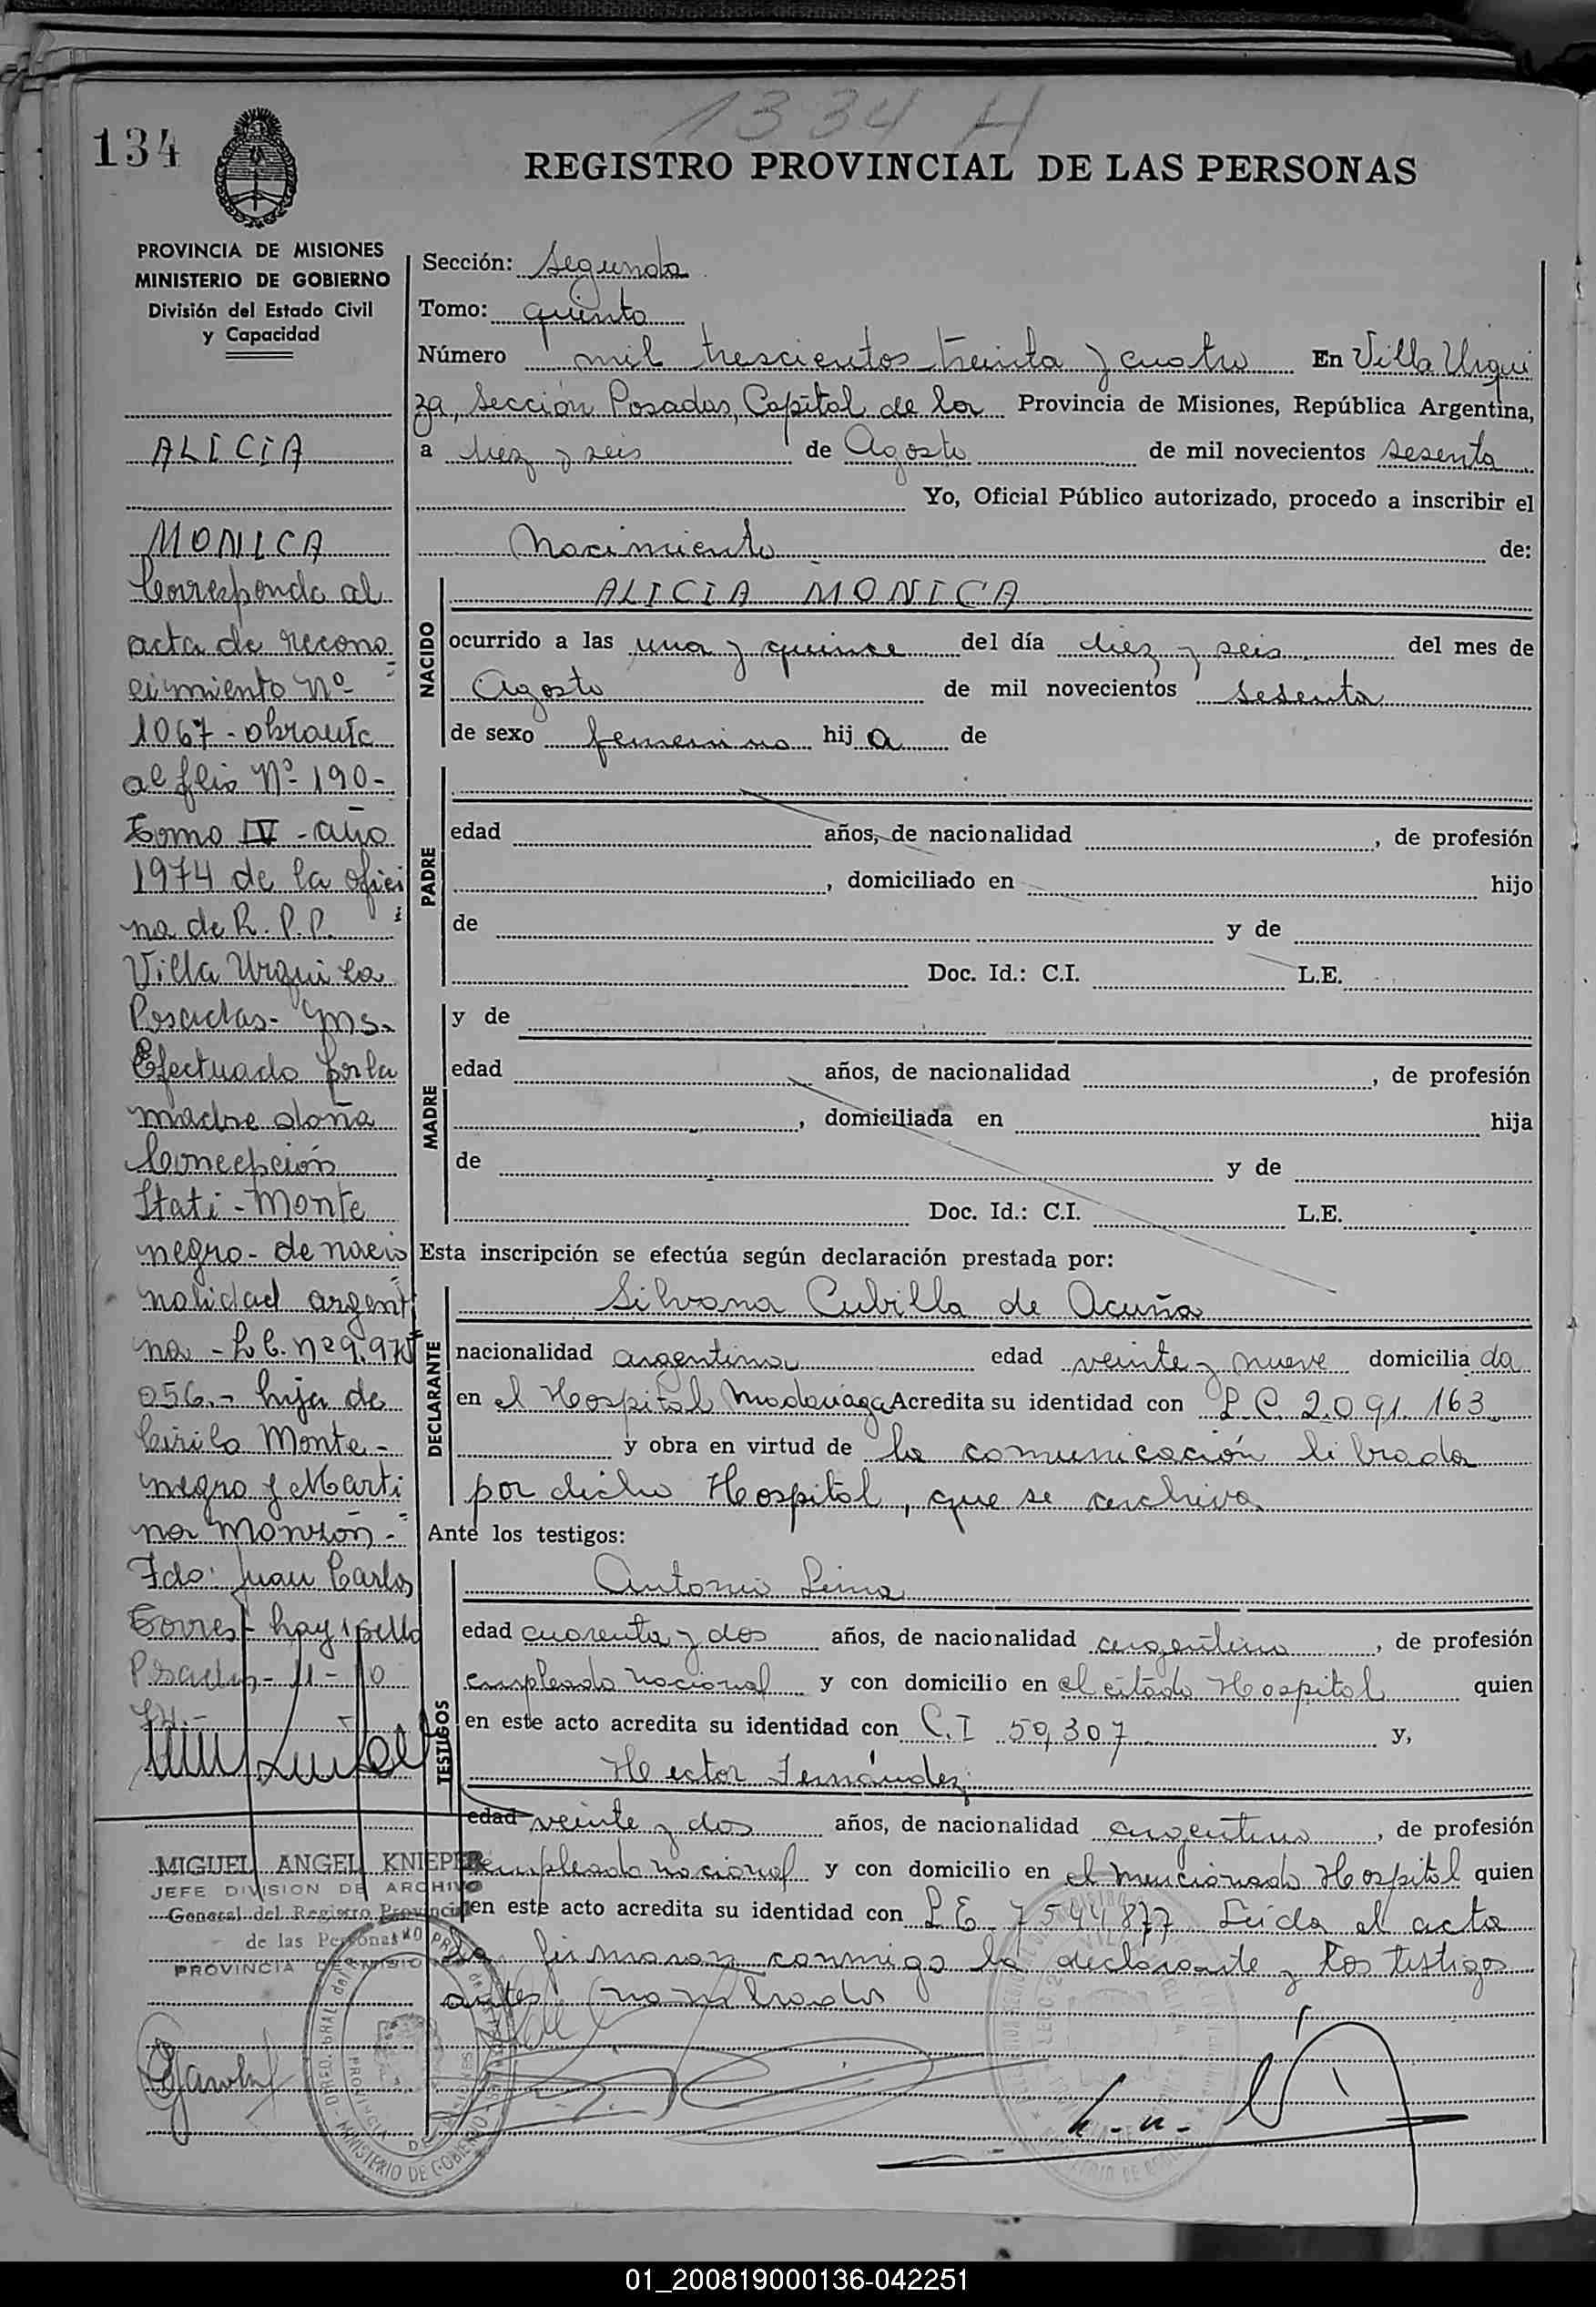 1334 H
134
REGISTRO PROVINCIAL DE LAS PERSONAS
PROVINCIA DE MISIONES
MINISTERIO DE GOBIERNO
División del Estado Civil
y Capacidad
ALICIA
MONICA
Corresponde al
acta de recono
cimiento Nº
1067 - obrante
al flio Nº 190-
Tomo IV - año
1974 de la ofici
na de R. P. P.
Villa Urquiza
Posadas - Mns.
Efectuado por la
madre doña
Concepción
Itati - Monte
negro - de nacio
nalidad argenti
na - L.C. nº 9.97
056.- hija de
Cirilo Monte-
negro y Marti
na Monzón.-
Fdo: Juan Carlos
Torres - hay 1 sello
Posadas - 11 - 10
MIGUEL ANGEL KNIEPER
JEFE DIVISION DE ARCHIVO
General del Registro Provincial
de las Personas
PROVINCIA DE MISIONES
Sección: Segunda
Tomo: quinto
Número mil trescientos treinta y cuatro En Villa Urqui
za, Sección Posadas, Capital de la Provincia de Misiones, República Argentina,
a diez y seis de Agosto de mil novecientos sesenta
Yo, Oficial Público autorizado, procedo a inscribir el
Nacimiento de:
NACIDO
ALICIA MONICA
ocurrido a las una y quince del día diez y seis del mes de
Agosto de mil novecientos sesenta
de sexo femenino hija de
PADRE
edad años, de nacionalidad , de profesión
, domiciliado en hijo
de y de
Doc. Id.: C.I. L.E.
MADRE
y de
edad años, de nacionalidad , de profesión
, domiciliada en hija
de y de
Doc. Id.: C.I. L.E.
Esta inscripción se efectúa según declaración prestada por:
DECLARANTE
Silvana Cubilla de Acuña
nacionalidad argentina edad veinte y nueve domiciliada
en el Hospital Madariaga Acredita su identidad con L.C. 2.091.163
y obra en virtud de la comunicación librada
por dicho Hospital, que se archiva
Ante los testigos:
TESTIGOS
Antonio Leiva
edad cuarenta y dos años, de nacionalidad argentino, de profesión
empleado nacional y con domicilio en el citado Hospital quien
en este acto acredita su identidad con C.I 59.307 y,
Hector Fernández
edad veinte y dos años, de nacionalidad argentino, de profesión
empleado nacional y con domicilio en el mencionado Hospital quien
en este acto acredita su identidad con L.E. 7544877 Leida el acta
la firmaron conmigo la declarante y los testigos
antes nombrados
01_200819000136-042251